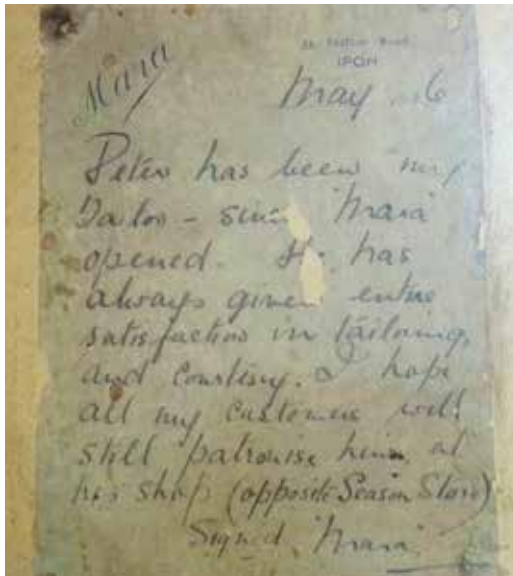 Mara
Station Road,
IPOH
May 6
Peter has been my
Tailor - since 'Mara'
opened. He has
always given entire
satisfaction in tailoring,
and courtesy. I hope
all my customers will
still patronise him at
his shop (opposite Season Store)
Signed, 'Mara'